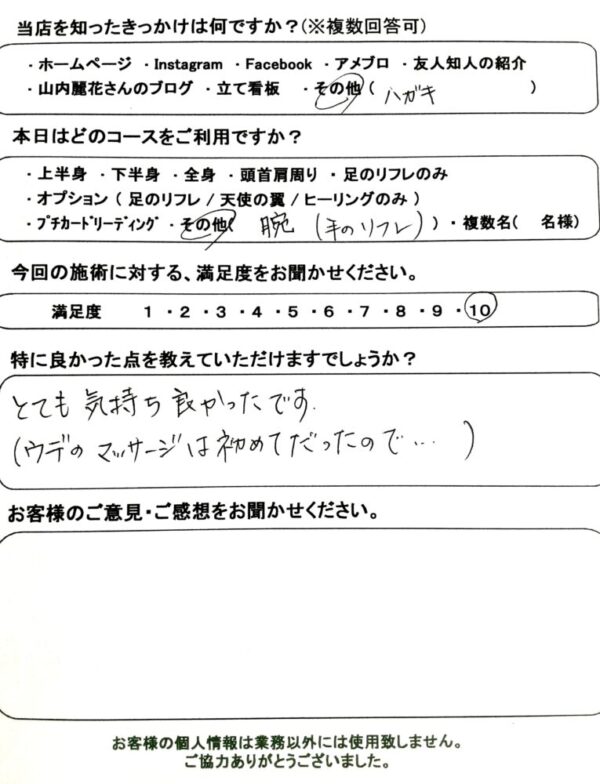 当店を知ったきっかけは何ですか?(※複数回答可)
・ホームページ ・Instagram ・Facebook ・アメブロ ・友人知人の紹介
・山内麗花さんのブログ ・立て看板 ・その他( ハガキ )
本日はどのコースをご利用ですか?
・上半身 ・下半身 ・全身 ・頭首肩周り ・足のリフレのみ
・オプション( 足のリフレ / 天使の翼 / ヒーリングのみ )
・プチカードリーディング ・その他( 腕 (手のリフレ) ) ・複数名( 名様)
今回の施術に対する、満足度をお聞かせください。
満足度 1 ・2 ・3 ・4 ・5 ・6 ・7 ・8 ・9 ・10
特に良かった点を教えていただけますでしょうか?
とても 気持ち 良かったです.
(ウデの マッサージは初めてだったので… )
お客様のご意見・ご感想をお聞かせください。
お客様の個人情報は業務以外には使用致しません。
ご協力ありがとうございました。